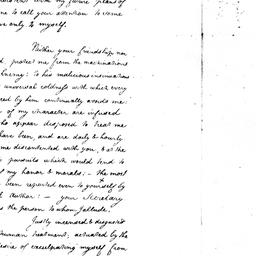 my future plans of
me to call your attention to some
only to myself.
Neither your friendship, nor
protect me from the machinations
Enemy: to his malicious insinuations
universal coldness with which every
by him continually avoids me.
of my character are infused
who appear disposed to treat me
have been, and are daily & hourly
me discontented with you, & at the
pursuits which would tend to
my honor & morals: – the most
been reported even to yourself by
Author: – your Secretary
is the person to whom I allude.
Justly incensed & disgusted
treatment; actuated by the
desire of exculpating myself from